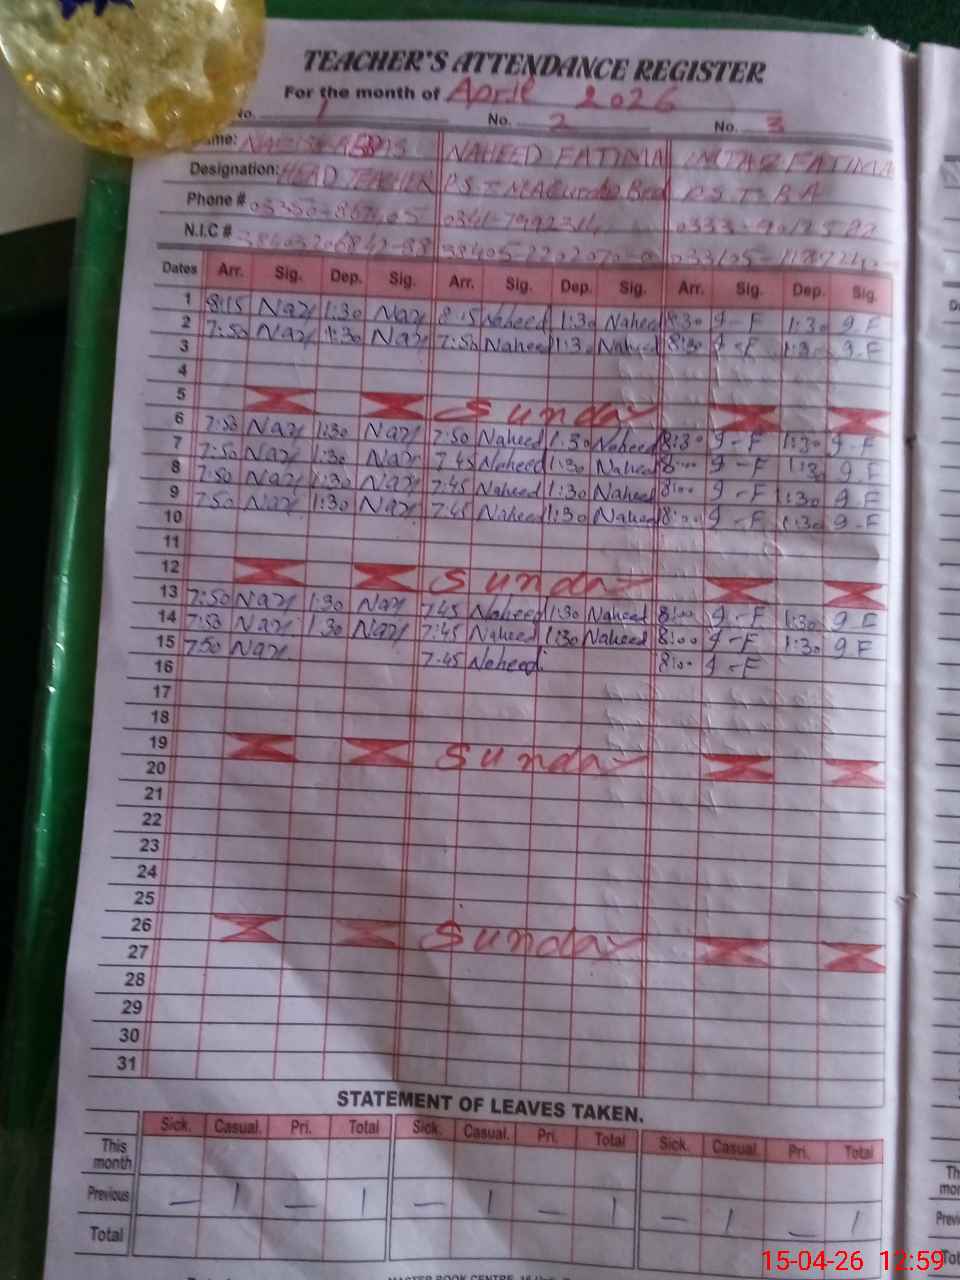 TEACHER'S ATTENDANCE REGISTER
For the month of April 2026
No. 1 No. 2 No. 3
NAHEED FATIMA FATIMA
Designation: HEAD TEACHER
Phone #
N.I.C #
Dates Arr. Sig. Dep. Sig. Arr. Sig. Dep. Sig. Arr. Sig. Dep. Sig.
1 8:15 Naz 1:30 Naz 8:15 Naheed 1:30 Naheed 8:30 g-F 1:30 g.F
2 7:50 Naz 1:30 Naz 7:50 Naheed 1:30 Naheed 8:30 g-F 1:30 g.F
3
4
5 Sunday
6 7:53 Naz 1:30 Naz 7:50 Naheed 1:30 Naheed 8:30 g-F 1:30 g-F
7 7:50 Naz 1:30 Naz 7:45 Naheed 1:30 Naheed 8:00 g-F 1:30 g.F
8 7:50 Naz 1:30 Naz 7:45 Naheed 1:30 Naheed 8:00 g-F 1:30 g-F
9 7:50 Naz 1:30 Naz 7:45 Naheed 1:30 Naheed 8:00 g-F 1:30 g-F
10
11
12 Sunday
13 7:50 Naz 1:30 Naz 7:45 Naheed 1:30 Naheed 8:00 g-F 1:30 g F
14 7:53 Naz 1:30 Naz 7:45 Naheed 1:30 Naheed 8:00 g-F 1:30 g F
15 7:50 Naz 7:45 Naheed 8:00 g-F
16
17
18
19 Sunday
20
21
22
23
24
25
26 Sunday
27
28
29
30
31
STATEMENT OF LEAVES TAKEN.
Sick. Casual. Pri. Total Sick. Casual. Pri. Total Sick. Casual. Pri. Total
This month
Previous — 1 — 1 — 1 — 1 — 1 — 1
Total
15-04-26 12:59